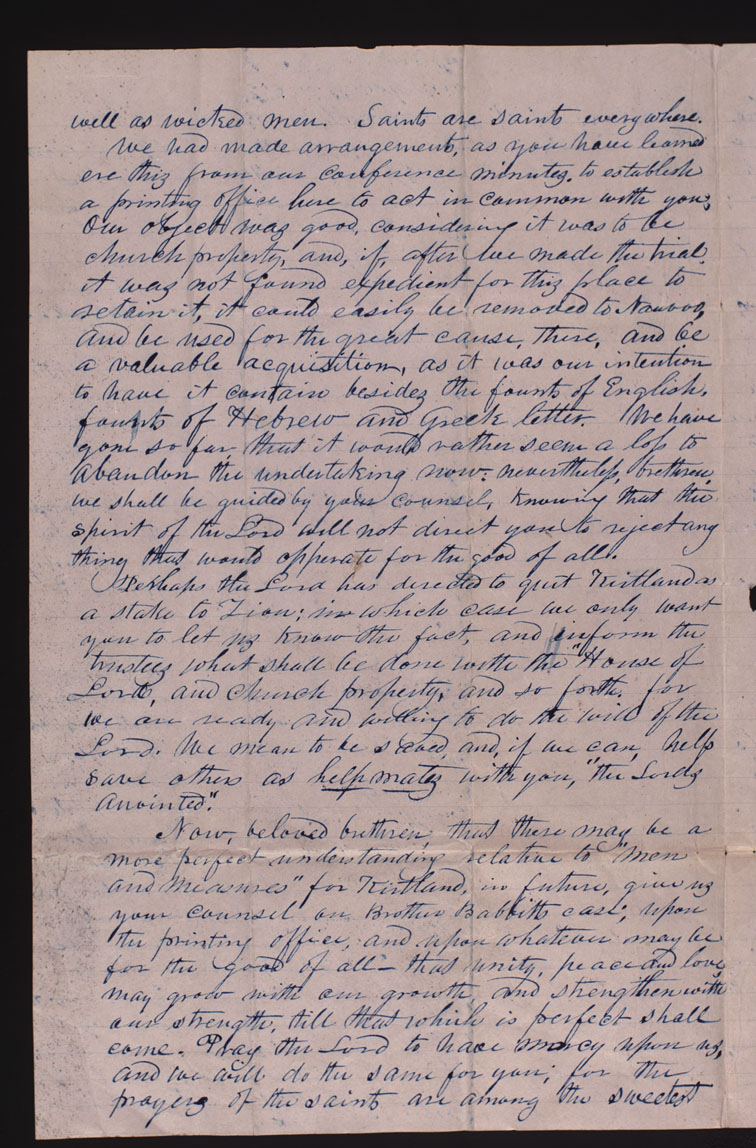 well as wicked men. Saints are saints everywhere.
We had made arrangements, as you have learned
ere this from our conference minutes, to establish
a printing office here to act in common with you.
Our object was good, considering it was to be
church property, and, if, after we made the trial,
it was not found expedient for this place to
retain it, it could easily be removed to Nauvoo,
and be used for the great cause, there, and be
a valuable acquisition, as it was our intention
to have it contain besides the founts of English,
founts of Hebrew and Greek letter. We have
gone so far, that it would rather seem a loss to
abandon the undertaking now: nevertheless, brethren,
we shall be guided by your counsel, knowing that the
spirit of the Lord will not direct you to reject any
thing that would opperate for the good of all.
Perhaps the Lord has directed to quit Kirtland as
a stake to Zion; in which case we only want
you to let us know the fact, and inform the
trustees what shall be done with the "House of
Lord, and church property, and so forth. for
we are ready and willing to do the will of the
Lord. We mean to be saved, and, if we can, help
save others as helpmates with you, "the Lords
anointed".
Now, beloved brethren, that there may be a
more perfect understanding relative to "men
and measures" for Kirtland, in future, give us
your counsel on Brother Babbitts case; upon
the printing office, and upon whatever may be
for the good of all – that unity, peace and love,
may grow with our growth, and strengthen with
our strength, till that which is perfect shall
come. Pray the Lord to have mercy upon us,
and we will do the same for you; for the
prayers of the saints are among the sweetest